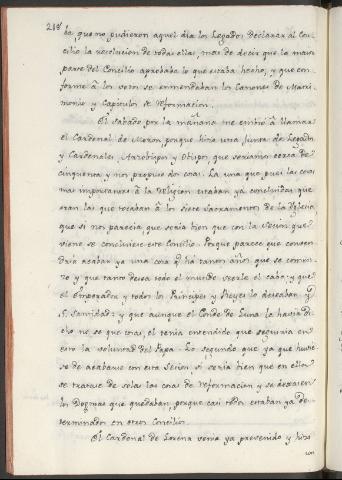 218
da, que no pudieron aquel dia los Legados declarar al Con-
cilio la resolucion de todas ellas, mas de decir que la maior
parte del Concilio aprobaba lo que estaba hecho, y que con-
forme à los votos se enmendaban los Canones de Matri-
monio y Capitulos de reformacion.
El sabado por la mañana me embiò à llamar
el Cardenal de Moron, porque hizo una junta de Legados
y Cardenales, Arzobispos y Obispos, que seriamos cerca de
cinquenta y nos propuso dos cosas. La una que pues las cosas
mas importantes à la Religion estaban ya concluidas que
eran las que tocaban à los siete Sacramentos de la Iglesia
que si nos parecia que seria bien que con la Sesion que
viene se concluiese este Concilio. Porque parece que conven-
dria acabar ya una cosa q ha tantos años que se comen-
zò y que tanto desea todo el mundo verle el cabo, y que
el Emperador y todos los Principes y Reyes lo deseaban y
S. Santidad, y que aunque el Conde de Luna le havia di-
cho no se que cosas, el tenia entendido que seguiria en
esto la voluntad del Papa. Lo segundo que ya que huvie-
se de acabarse con esta Sesion si seria bien que en ella
se tratase de solas las cosas de reformacion y se dexasen
los Dogmas que quedaban, porque casi todos estaban ya de-
terminados en otros Concilios.
El Cardenal de Lorena venia ya prevenido y hizo